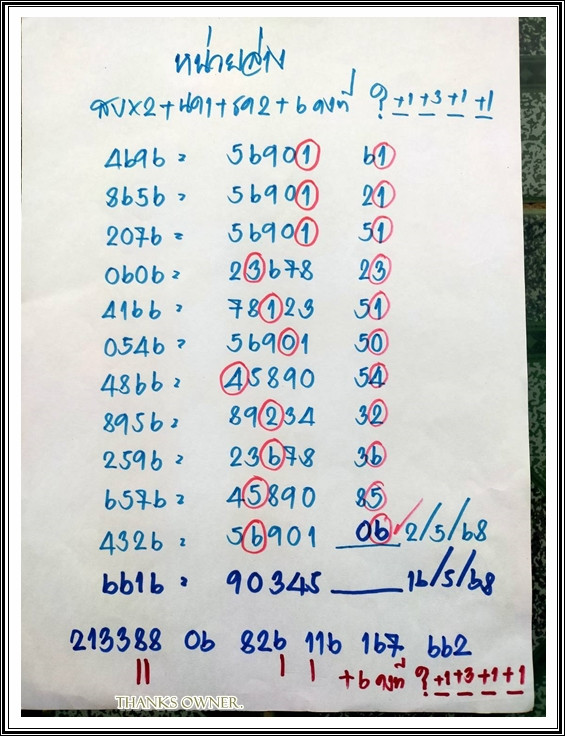 หน่วยล่าง
สบX2+นค1+รค2+6 คงที่ ? +1 +3 +1 +1
4696 = 56901 61
8656 = 56901 21
2076 = 56901 51
0606 = 23678 23
4166 = 78123 51
0546 = 56901 50
4866 = 45890 54
8956 = 89234 32
2596 = 23678 36
6576 = 45890 85
4326 = 56901 06 ✓ 2/5/68
6616 = 90345 ____ 16/5/68
213388 06 826 116 167 662
|| | | +6 คงที่ ? +1 +3 +1 +1
THANKS OWNER.